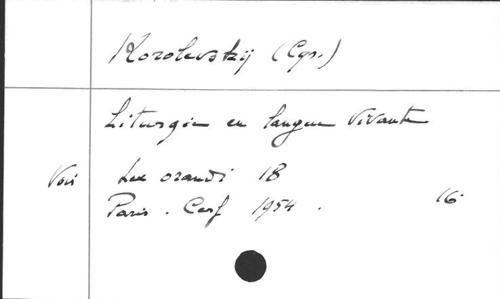 Korolevskij (Cyr.)
Liturgie en langue vivante
Voir Lex orandi 18
Paris. Cerf 1954. 16°